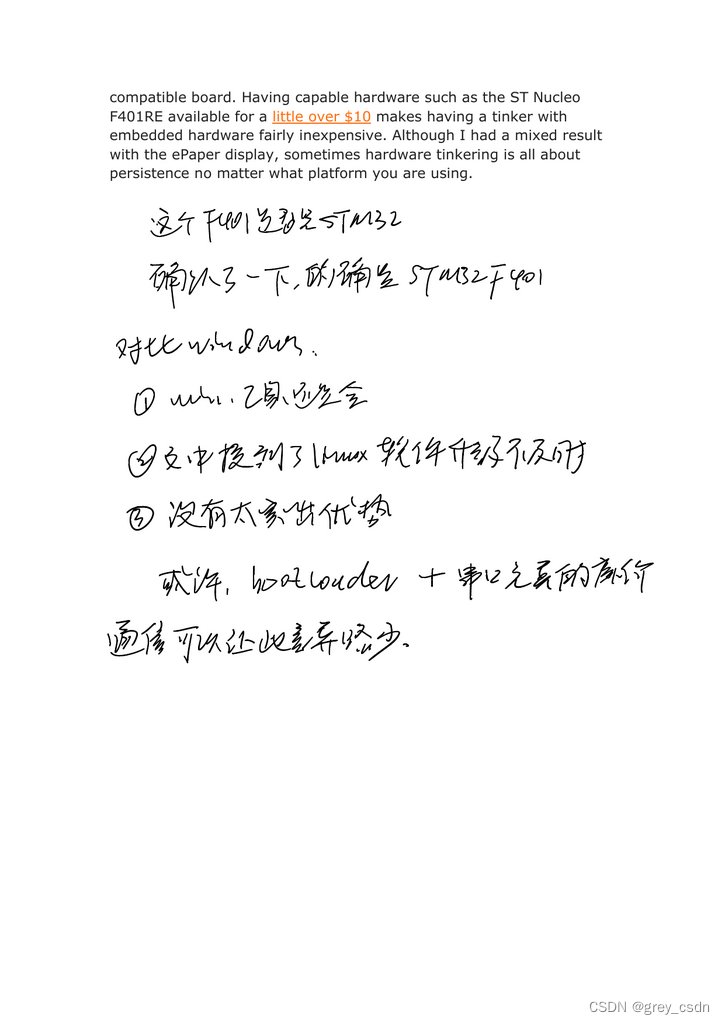 compatible board. Having capable hardware such as the ST Nucleo
F401RE available for a little over $10 makes having a tinker with
embedded hardware fairly inexpensive. Although I had a mixed result
with the ePaper display, sometimes hardware tinkering is all about
persistence no matter what platform you are using.
这个F401是否是STM32
确认了一下,的确是STM32F401
对比windows.
① win.工具还是全
② 文中提到了linux软件升级不及时
③ 没有太突出优势
或许, bootloader + 串口之类的廉价
通信可以让此差异略少.
CSDN @grey_csdn